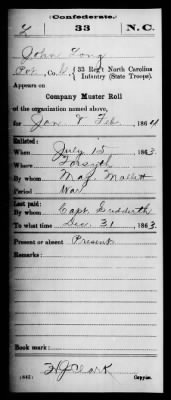 Confederate.
L 33 N.C.
John Long
Pvt, Co. 33 Reg't North Carolina
Infantry (State Troops).
Appears on
Company Muster Roll
of the organization named above,
for Jan & Feb, 1864
Enlisted:
When July 15, 1863.
Where Forsyth
By whom Maj. Mallett
Period War
Last paid:
By whom Capt. Sudderth
To what time Dec. 31, 1863.
Present or absent Present
Remarks:
Book mark:
(642) Copyist.